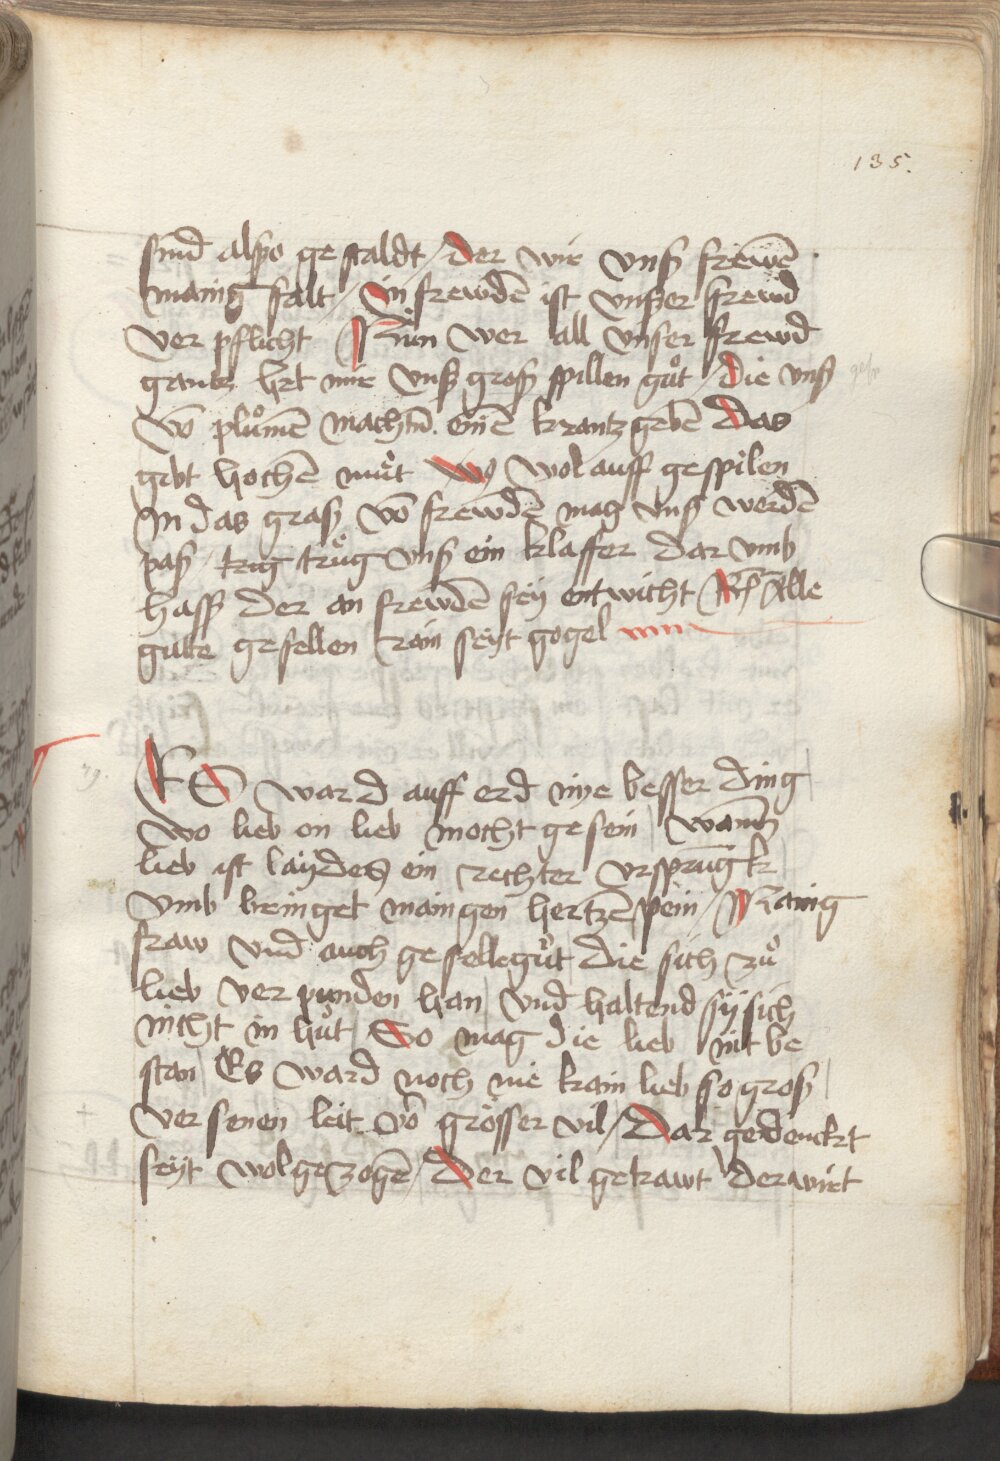 135.
sind alßo ge staldt / der wir vnß frewē
manig falt / in frewdē ist vnßer frewd
ver pflicht Nun wer all vnser frewd
gantz hrt mir vnß groß spillen gůt / die vnß
vō plůmē machtn̄. einē krantz gebē das
gebt hochē můt wo wol auff gespilen
In das graß vō frewdē mag vnß werdē
paß / trag krůg vnß ein klaffer dar vmb
hasß der an frewdē seÿ entwicht Rp̄ Alle
gutte gesellen rain seÿt gogel
79.
ES ward auff erd nye besser ding
wo lieb on lieb mocht gesein / wann
lieb ist laÿdes ein rechter vrsprūgk
vmb bringet maingen hertzē pein / Manig
fraw vnd auch geselle gůt die sich zů
lieb ver punden han / vnd haltend sÿ sich
nicht in hůt / So mag die lieb nit be
stan / Es ward noch nie kain lieb so groß /
ver senen leit vō grösser vil / Dar gedenckt
seÿt wol gezogē / Der vil getrawt der wirt